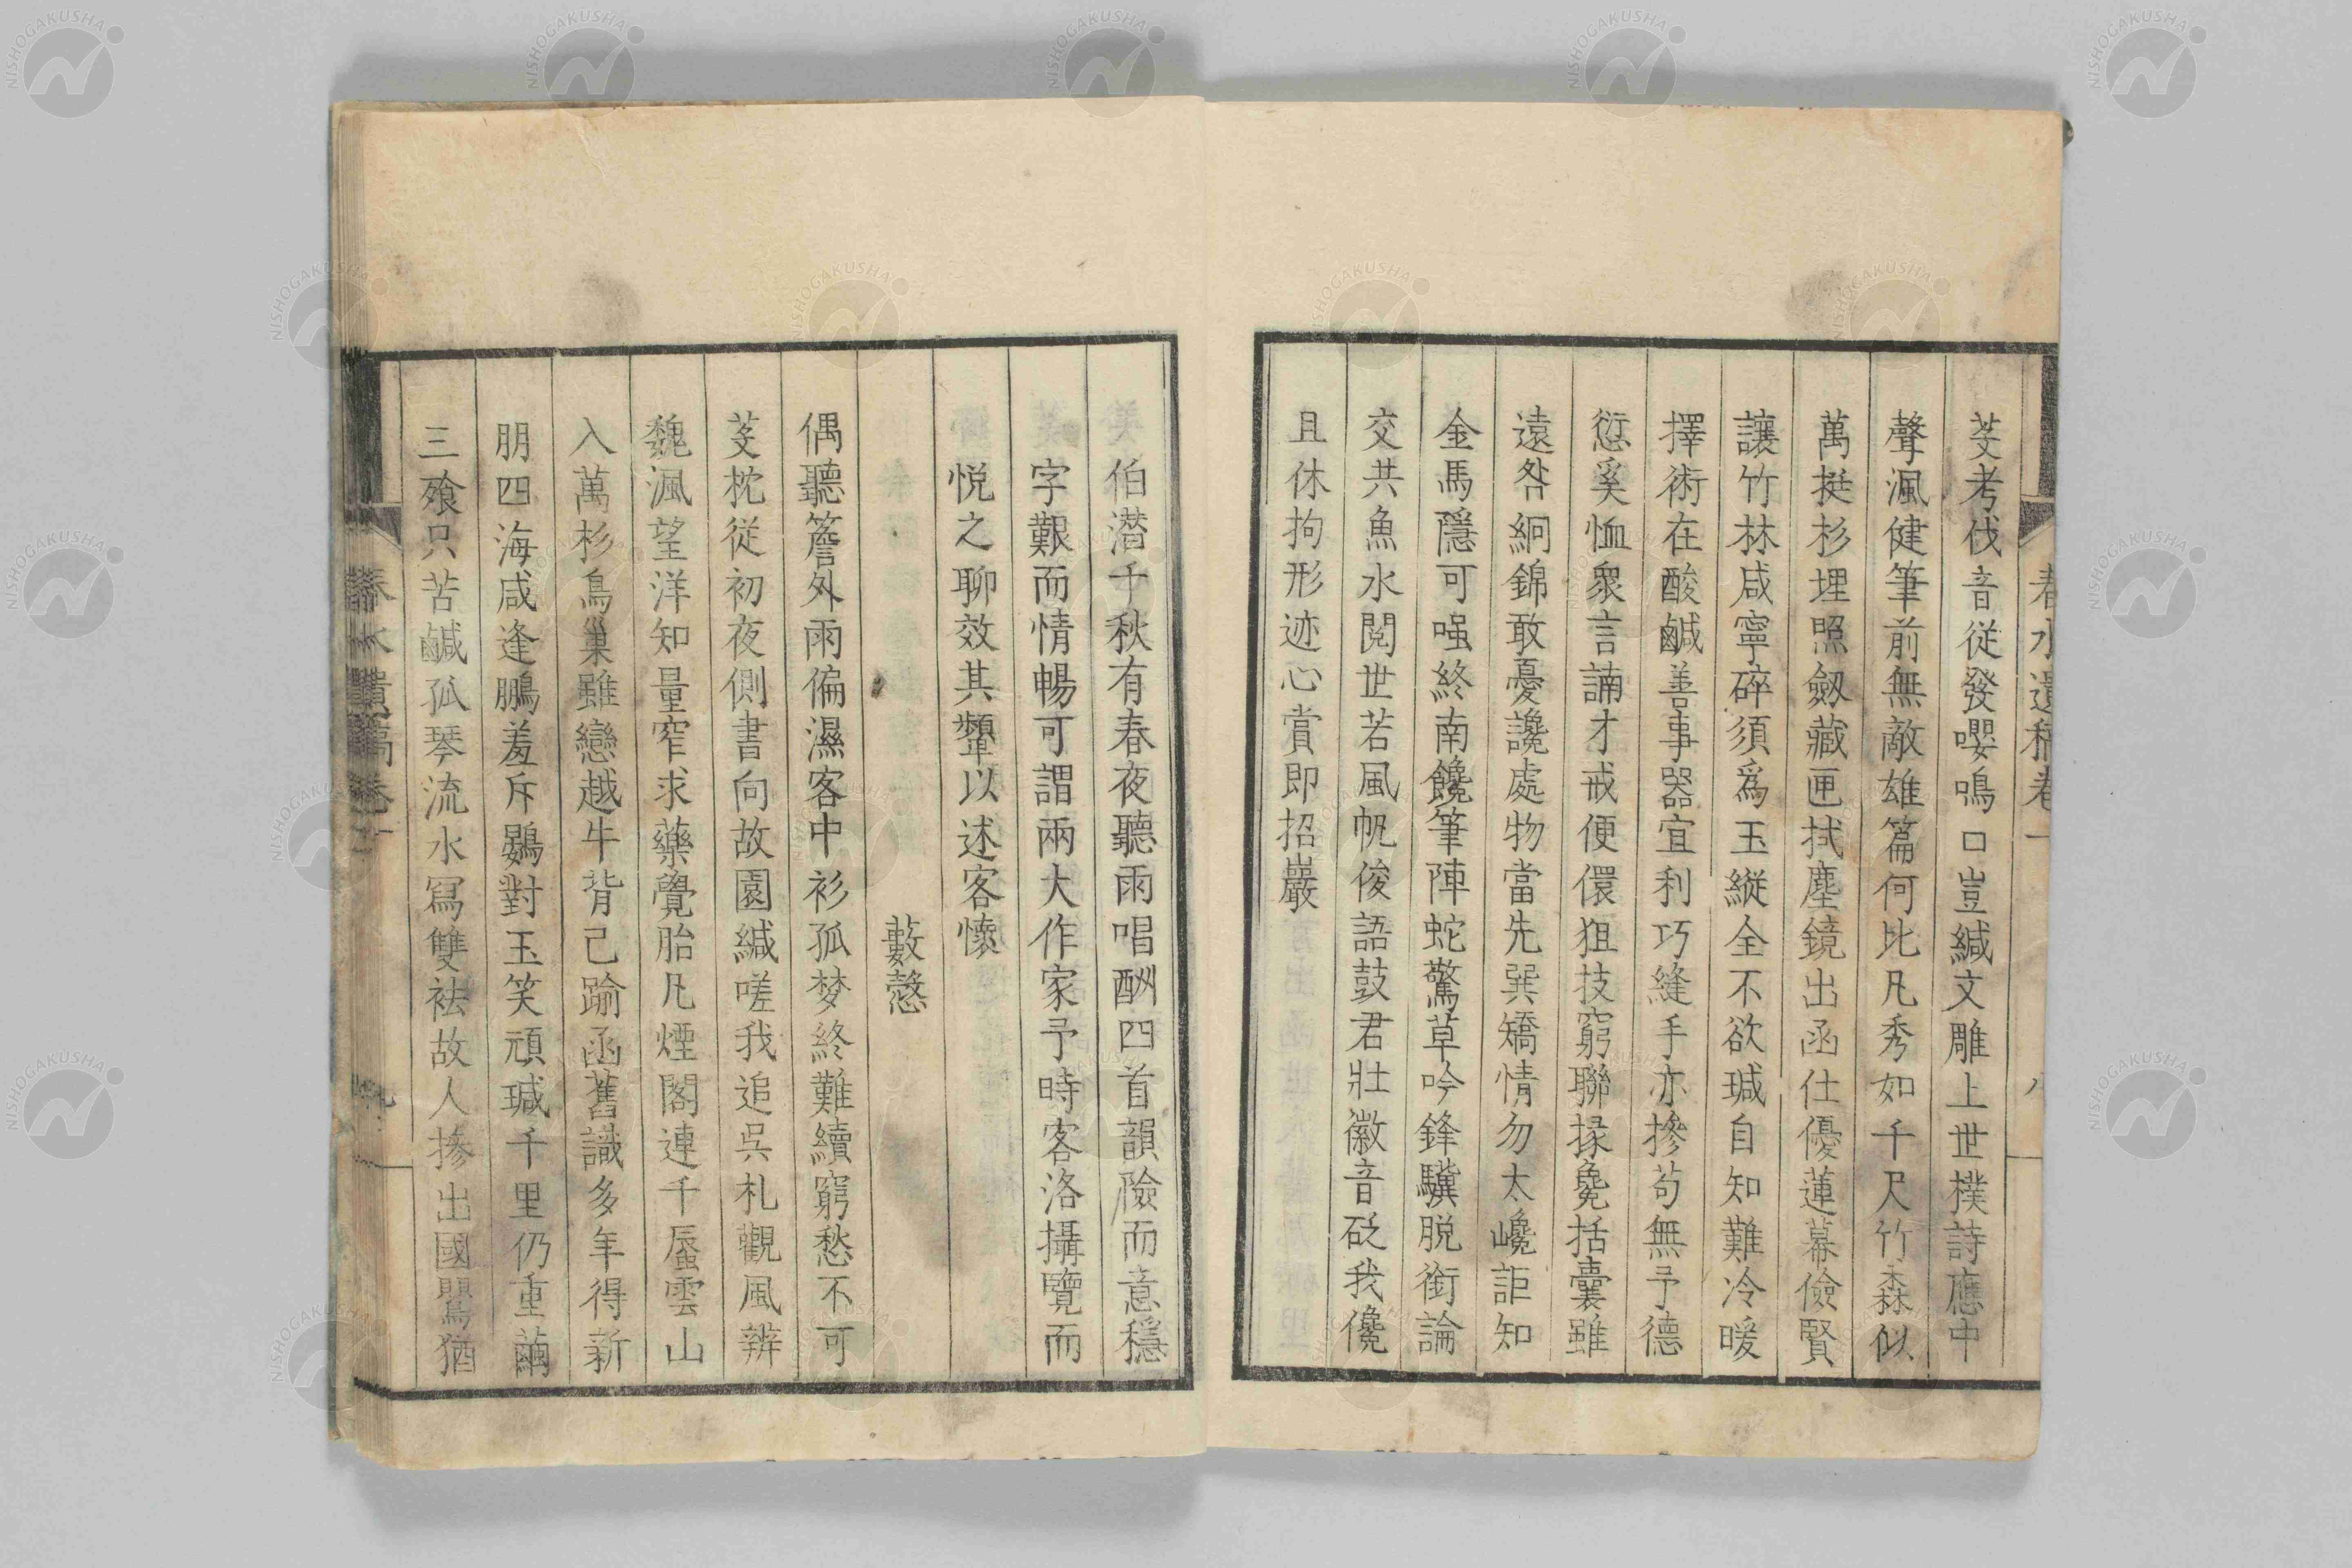 春水遺稿卷一
八
芟考伐音從發嚶鳴口豈緘文雕上世樸詩應中
聲渢健筆前無敵雄篇何比凡秀如千尺竹森似
萬挺杉埋照劔藏匣拭塵鏡出函仕優蓮幕儉賢
讓竹林咸寧碎須爲玉縱全不欲瑊自知難冷暖
擇術在酸鹹善事器宜利巧縫手亦摻苟無予德
愆奚恤衆言諵才戒便儇狙技窮聯掾毚括囊雖
遠咎絅錦敢憂讒處物當先巽矯情勿太巉詎知
金馬隱可強終南饞筆陣蛇驚草吟鋒驥脱銜論
交共魚水閱世若風帆俊語鼓君壯徽音砭我儳
且休拘形迹心賞即招巖
伯潛千秋有春夜聽雨唱酬四首韻險而意穩
字艱而情暢可謂兩大作家予時客洛攝覽而
悦之聊效其顰以述客懷
藪愨
偶聽簷外雨偏濕客中衫孤梦終難續窮愁不可
芟枕從初夜側書向故園緘嗟我追呉札觀風辨
魏渢望洋知量窄求藥覺胎凡煙閣連千蜃雲山
入萬杉鳥巢雖戀越牛背已踰函舊識多年得新
朋四海咸逢鵬羞斥鷃對玉笑頑瑊千里仍重繭
三飧只苦鹹孤琴流水寫雙袪故人摻出國鸎猶
春水遺稿卷一
九
NISHOGAKUSHA